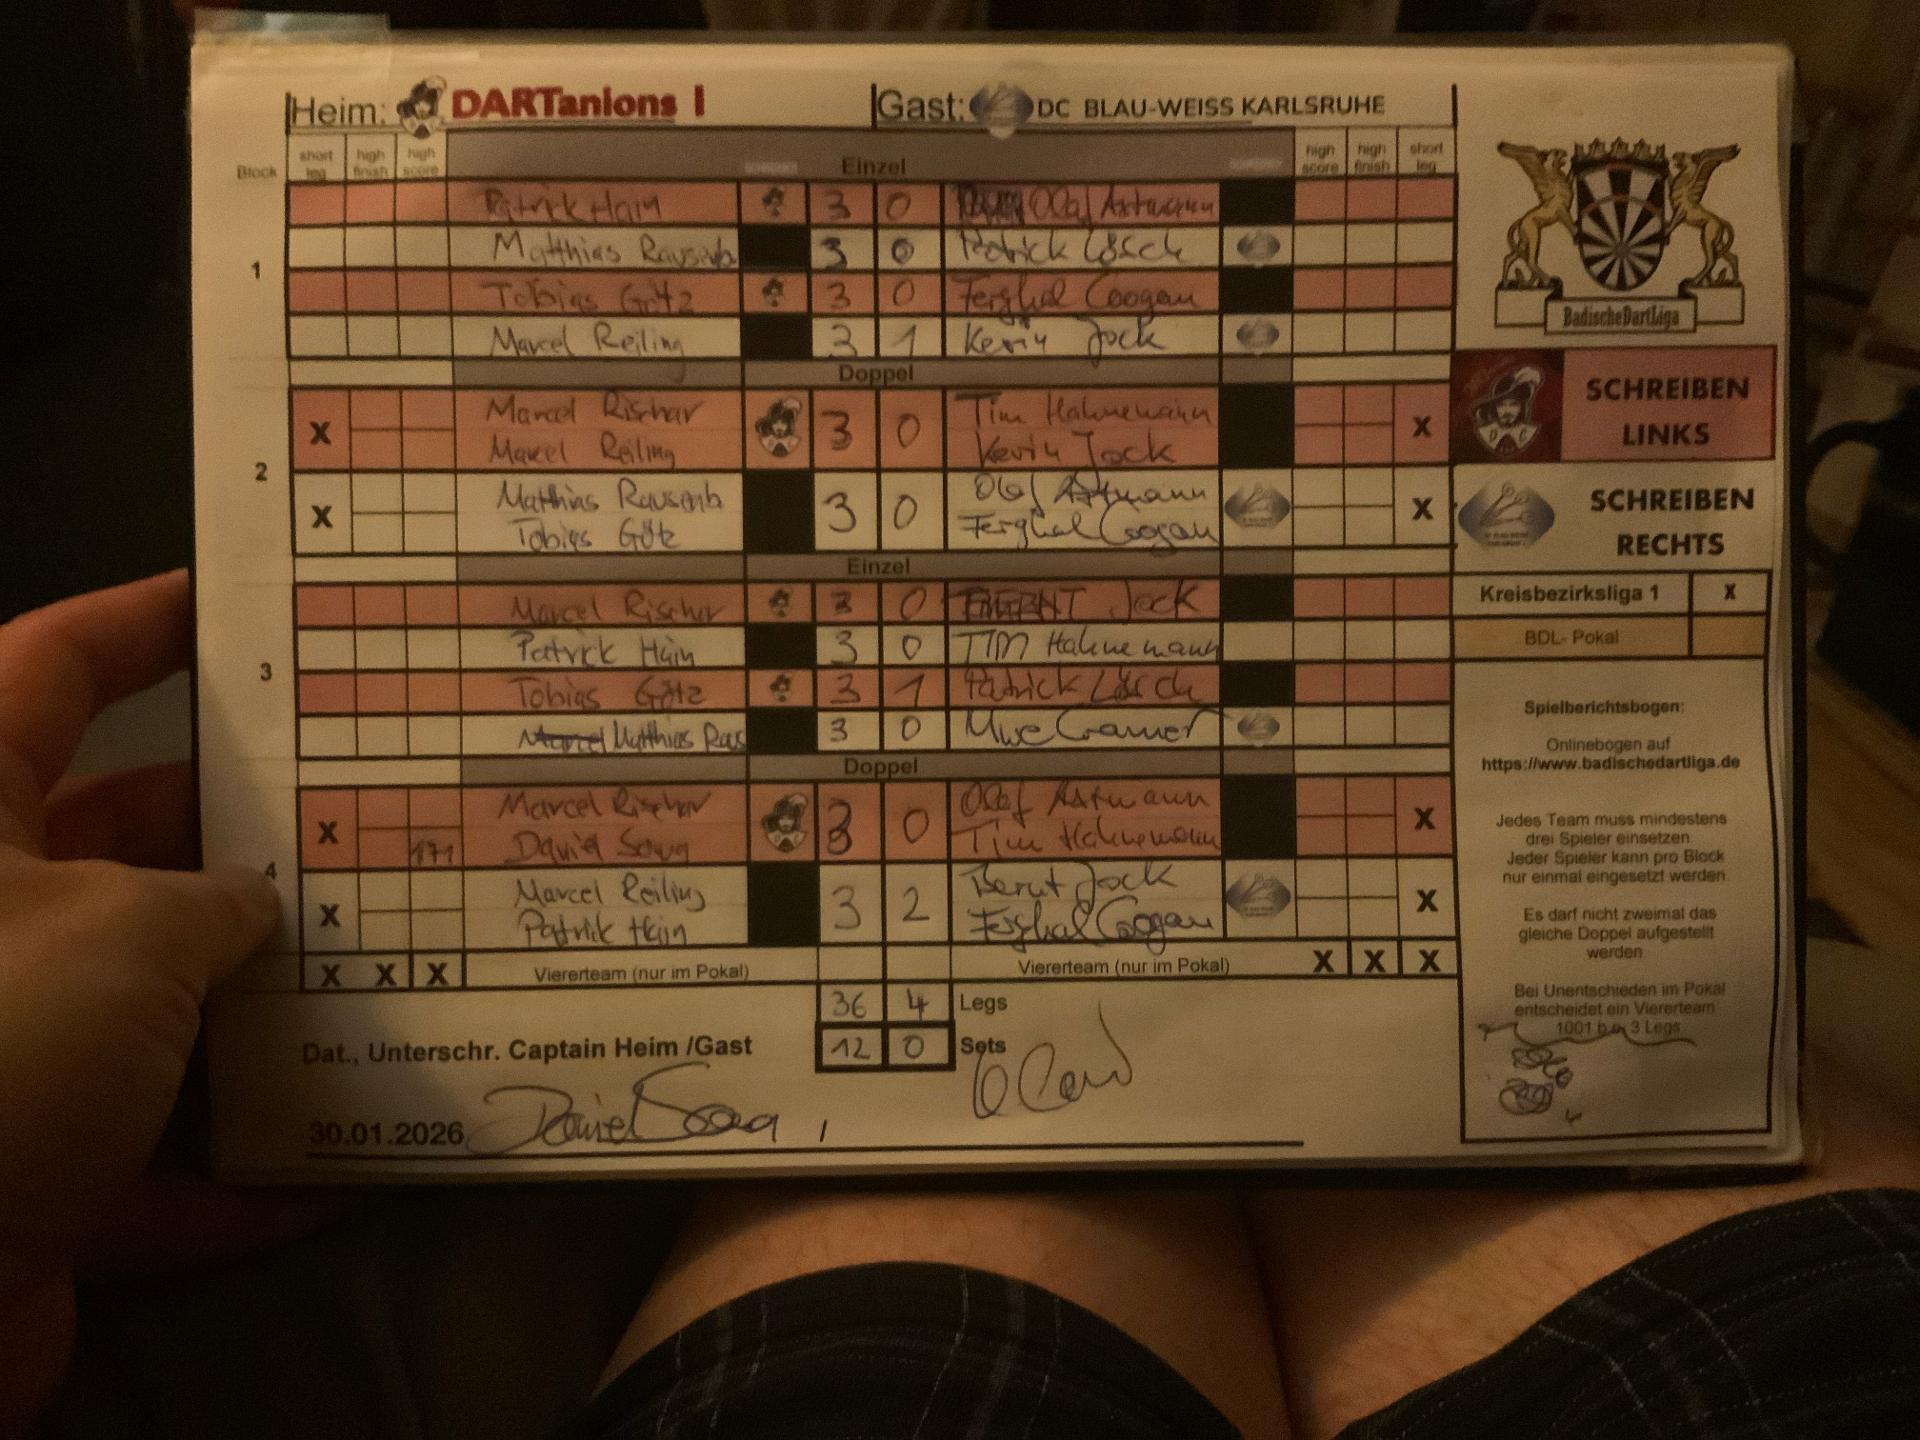 Heim: DARTanIons I Gast: DC BLAU-WEISS KARLSRUHE
Block short leg high finish high score Einzel high score high finish short leg
1
Patrick Hain 3 0 Olaf Astmann
Matthias Rausenb 3 0 Patrick Lösch
Tobias Götz 3 0 Ferghal Coogan
Marcel Reiling 3 1 Kevin Jock
Doppel
2
X Marcel Rischar 3 0 Tim Hahnemann X
Marcel Reiling Kevin Jock
X Matthias Rausenb 3 0 Olaf Astmann X
Tobias Götz Ferghal Coogan
Einzel
3
Marcel Rischar 3 0 Jock
Patrick Hain 3 0 TIM Hahnemann
Tobias Götz 3 1 Patrick Lösch
Marcel Matthias Raus 3 0 Uwe Cramer
Doppel
4
X Marcel Rischar 3 0 Olaf Astmann X
171 David Sowa Tim Hahnemann
X Marcel Reiling 3 2 Bernt Jock X
Patrik Hain Ferghal Coogan
X X X Viererteam (nur im Pokal) Viererteam (nur im Pokal) X X X
36 4 Legs
Dat., Unterschr. Captain Heim /Gast 12 0 Sets
30.01.2026
BadischeDartLiga
SCHREIBEN
LINKS
SCHREIBEN
RECHTS
Kreisbezirksliga 1 X
BDL- Pokal
Spielberichtsbogen:
Onlinebogen auf
https://www.badischedartliga.de
Jedes Team muss mindestens
drei Spieler einsetzen.
Jeder Spieler kann pro Block
nur einmal eingesetzt werden.
Es darf nicht zweimal das
gleiche Doppel aufgestellt
werden
Bei Unentschieden im Pokal
entscheidet ein Viererteam
1001 b.o. 3 Legs